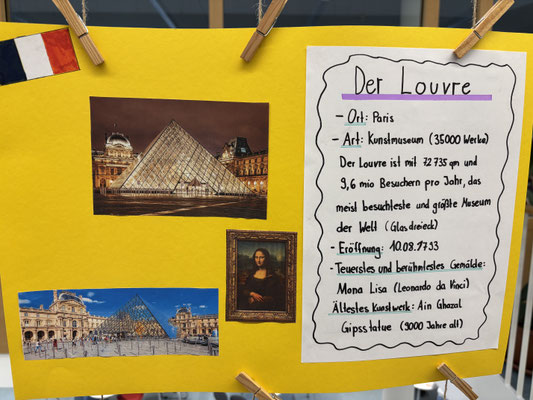 Der Louvre
- Ort: Paris
- Art: Kunstmuseum (35000 Werke)
Der Louvre ist mit 72 735 qm und
9,6 mio Besuchern pro Jahr, das
meist besuchteste und größte Museum
der Welt (Glasdreieck)
- Eröffnung: 10.08.1793
- Teuerstes und berühmtestes Gemälde:
Mona Lisa (Leonardo da Vinci)
Ältestes Kunstwerk: Ain Ghazal
Gipsstatue (9000 Jahre alt)